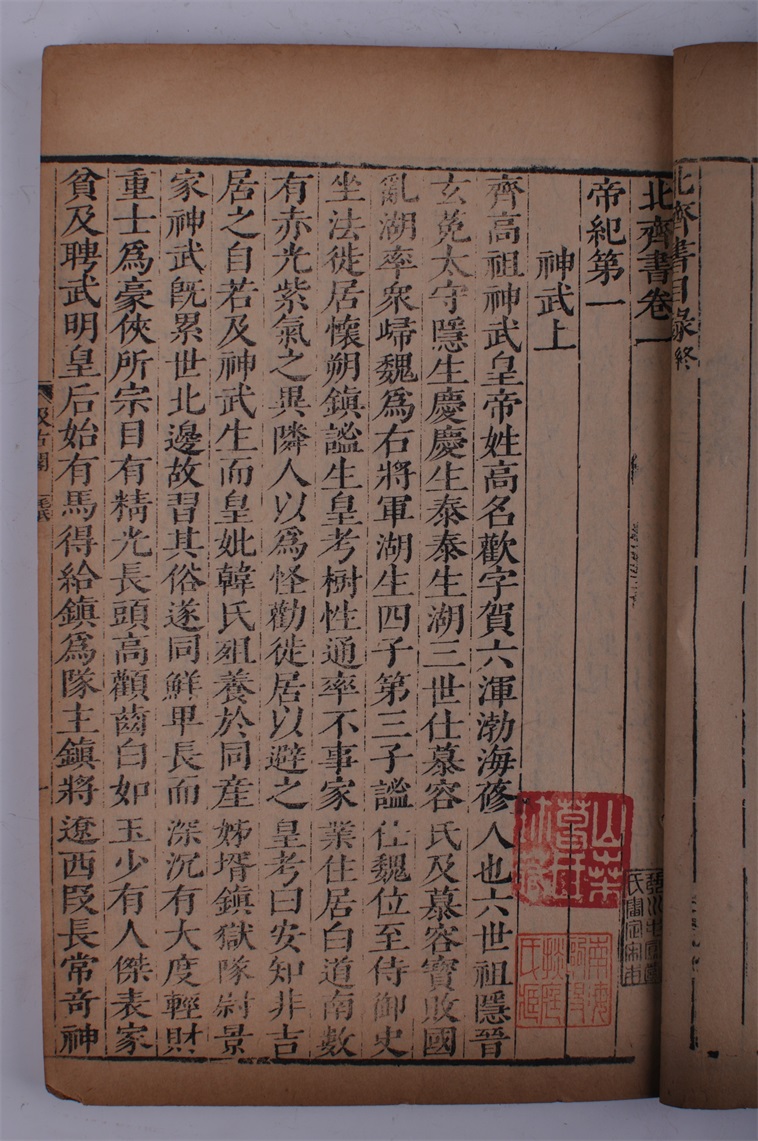 北齊書目録終
北齊書卷一
帝紀第一
神武上
齊高祖神武皇帝姓高名歡字賀六渾渤海蓨人也六世祖隱晉
玄菟太守隱生慶慶生泰泰生湖三世仕慕容氏及慕容寶敗國
亂湖率衆歸魏爲右將軍湖生四子第三子謐仕魏位至侍御史
坐法徙居懷朔鎮謐生皇考樹性通率不事家業住居白道南數
有赤光紫氣之異隣人以爲怪勸徙居以避之皇考曰安知非吉
居之自若及神武生而皇妣韓氏殂養於同産姊壻鎮獄隊尉景
家神武旣累世北邊故習其俗遂同鮮卑長而深沉有大度輕財
重士爲豪俠所宗目有精光長頭高顴齒白如玉少有人傑表家
貧及聘武明皇后始有馬得給鎮爲隊主鎮將遼西叚長常奇神
汲古閣
毛氏
一